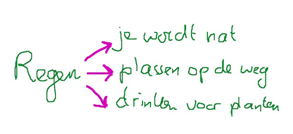 je wordt nat
Regen
plassen op de weg
drinken voor planten